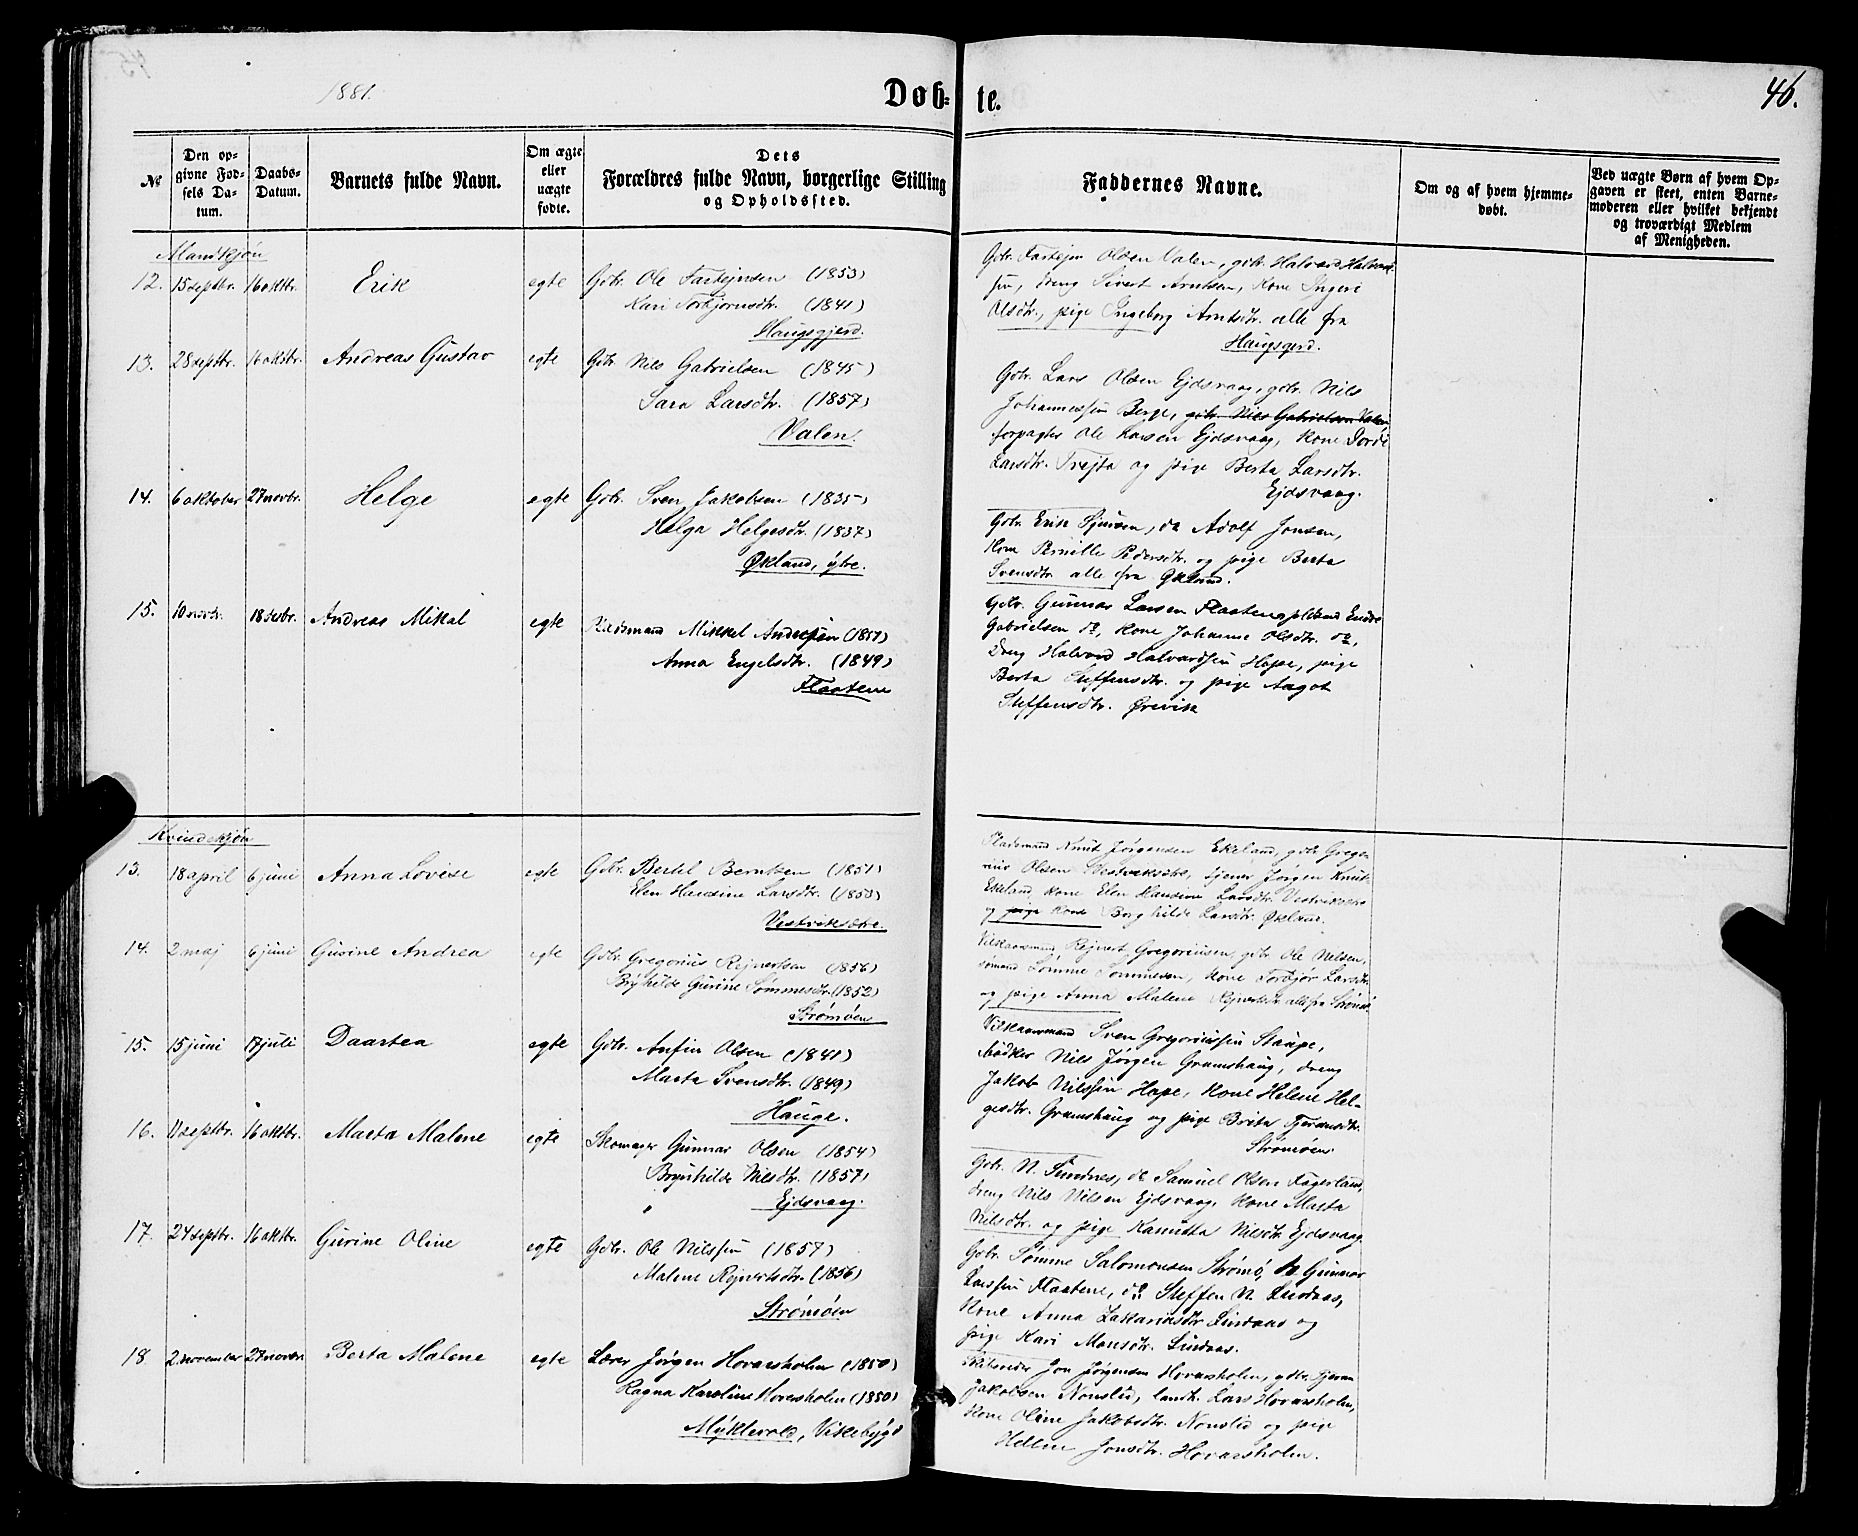 1881.
Døb-
te.
46.
№
Den op-
givne Fød-
sels Da-
tum.
Daabs-
Datum.
Barnets fulde Navn.
Om ægte
eller
uægte
fødte.
Dets
Forældres fulde Navn, borgerlige Stilling
og Opholdssted.
Faddernes Navne.
Om og af hvem hjemme-
døbt.
Ved uægte Børn af hvem Op-
gaven er skeet, enten Barne-
moderen eller hvilket bekjendt
og troværdigt Medlem
af Menigheden.
Mandkjøn
12. 15 septbr. 16 oktbr. Erik egte Gdbr. Ole Fartejnsen (1853)
Kari Torbjørnsdtr. (1841)
Haugsgjerd.
Gdbr. Fartejn Olsen Valen, gdbr. Halvard Halvard-
sen, dreng Sivert Arntsen, kone Ingeri
Olsdtr., pige Ingeborg Arntsdtr. alle fra
Haugsgerd.
13. 28 septbr. 16 oktbr. Andreas Gustav egte Gdbr. Nils Gabrielsen (1845)
Sara Larsdtr. (1857)
Valen.
Gdbr. Lars Olsen Ejdsvaag, gdbr. Nils
Johannessen Berge, gdbr. Nils Gabrielsen Valen
forpagter Ole Larsen Ejdsvaag, kone Dorde
Larsdtr. Trejta og pige Berta Larsdtr.
Ejdsvaag.
14. 6 oktober 27 novbr. Helge egte Gdbr. Sven Jakobsen (1835)
Helga Helgesdtr. (1837)
Økland, ytre.
Gdbr. Erik Sjursen, do Adolf Jonsen,
kone Pernille Pedersdtr. og pige Berta
Svensdtr. alle fra Økland.
15. 10 novbr. 18 desbr. Andreas Mikal egte Pladsmand Mikkel Andersen (1857)
Anna Engelsdtr. (1849)
Flaatene
Gdbr. Gunnar Larsen Flaatene, Endre
Gabrielsen do, kone Johanne Olsdtr. do,
Dreng Halvard Halvardsen Hope, pige
Berta Steffensdtr. og pige Aagot
Steffensdtr. Ørevik
Kvindekjøn
13. 18 april 6 juni Anna Lovise egte Gdbr. Bertel Berntsen (1851)
Elen Hansine Larsdtr. (1853)
Vestviksætre.
Pladsmand Knut Jørgensen Ekeland, gdbr Grego-
rius Olsen Vestviksætre, tjener Jørgen Knuts.
Ekeland, kone Elen Hansine Larsdtr. Vestviksætre
og pige kone Borghilde Larsdtr. Økland.
14. 2 maj 6 juni Gurine Andrea egte Gdbr. Gregorius Rejnertsen (1856)
Brynhilde Gurine Sømmesdtr. (1852)
Strømøen
Vilkaarsmand Rejnert Gregoriusen, gdbr Ole Nilsen,
sømand Sømme Sømmesen, kone Torbjør Larsdtr.
og pige Anna Malene Rejnertsdtr. alle fra Strømø
15. 15 juni 17 juli Daartea egte Gdbr. Anfin Olsen (1841)
Marta Svensdtr. (1849)
Hauge.
Vilkaarsmand Sven Gregoriussen Staupe,
bødker Nils Jørgen Grumshaug, dreng
Jakob Nilssen Hope, kone Helene Hel-
gesdtr. Grumshaug og pige Brita Tjeransdtr.
Strømøen
16. 11 septbr. 16 oktbr. Marta Malene egte Skomager Gunnar Olsen (1854)
Brynhilde Nilsdtr. (1857)
Ejdsvaag.
Gdbr. N. Sundnes, do Samuel Olsen Fagerland,
dreng Nils Nilsen Ejdsvaag, kone Marta
Nilsdtr. og pige Kamitta Nilsdtr Ejdsvaag
17. 24 septbr. 16 oktbr. Gurine Oline egte Gdbr. Ole Nilssen (1857)
Malene Rejnertsdtr. (1856)
Strømøen
Gdbr. Sømme Salomonsen Strømø, Gunnar
Larssen Flaatene, do Steffen N. Lindaas,
kone Anna Zakariasdtr Lindaas og
pige Kari Monsdtr. Lindaas.
18. 2. november 27 novbr. Berta Malene egte Lærer Jørgen Hovarsholm (1850)
Ragna Karoline Hovarsholm (1850)
Myklevold, Vikebygd
Skibsreder Jon Jørgensen Hovarsholm, gdbr. Tjeran
Jakobsen Nonslid, landh. Lars Hovarsholm,
kone Oline Jakobsdtr. Nonslid og pige
Helene Jonsdtr. Hovarsholm.